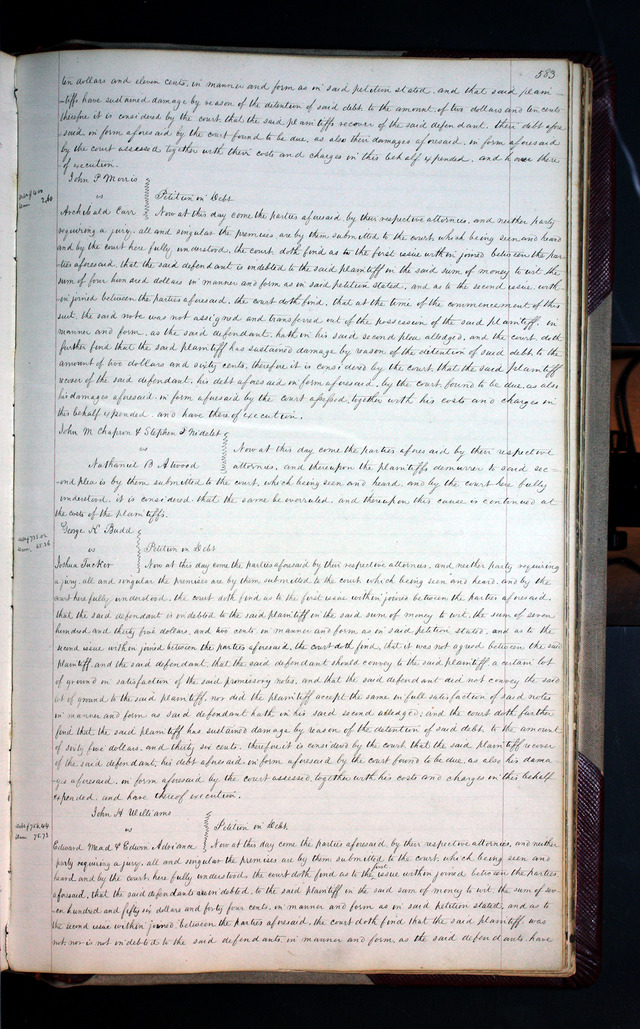 583
ten dollars and eleven cents, in manner and form as in said petition stated, and that said plain-
-tiffs have sustained damage by reason of the detention of said debt to the amount of two dollars and ten cents
therefore it is considered by the court that the said plaintiffs recover of the said defendant, their debt afore
said in form aforesaid by the court found to be due, as also their damages aforesaid, in form aforesaid
by the court assessed together with their costs and charges in this behalf expended, and have there
of execution.
John P Morris
vs Petition in Debt
Archibald Carr Now at this day come the parties aforesaid by their respective attornies, and neither party
requiring a jury, all and singular the premises are by them submitted to the court, which being seen and heard
and by the court here fully understood, the court doth find as to the first issue within joined between the par
ties aforesaid, that the said defendant is indebted to the said plaintiff in the said sum of money to wit the
sum of four hundred dollars in manner and form as in said petition stated, and as to the second issue, with-
in joined between the parties aforesaid, the court doth find, that at the time of the commencement of this
suit, the said note was not assigned and transferred out of the possession of the said plaintiff, in
manner and form, as the said defendant, hath in his said second plea alledged, and the court doth
further find that the said plaintiff has sustained damage by reason of the detention of said debt to the
amount of two dollars and sixty cents, therefore it is considered by the court that the said plaintiff
recover of the said defendant, his debt aforesaid in form aforesaid, by the court found to be due, as also
his damages aforesaid in form aforesaid by the court assessed, together with his costs and charges in
this behalf expended, and have thereof execution.
John M Chapron & Stephen Nidelet
vs Now at this day come the parties aforesaid by their respective
Nathaniel B Atwood attornies, and thereupon the plaintiffs demurrer to said sec-
ond plea is by them submitted to the court, which being seen and heard, and by the court here fully
understood, it is considered that the same be overruled, and thereupon this cause is continued at
the costs of the plaintiffs.
George K Budd
vs Petition in Debt
Joshua Tucker Now at this day come the parties aforesaid by their respective attornies, and neither party requiring
a jury, all and singular the premises are by them submitted to the court which being seen and heard, and by the
court here fully understood, the court doth find as to the first issue within joined between the parties aforesaid,
that the said defendant is indebted to the said plaintiff in the said sum of money to wit, the sum of seven
hundred and thirty five dollars, and two cents in manner and form as in said petition stated, and as to the
second issue within joined between the parties aforesaid, the court doth find, that it was not agreed between the said
plaintiff, and the said defendant, that the said defendant should convey to the said plaintiff a certain lot
of ground in satisfaction of the said promissory notes, and that the said defendant did not convey the said
lot of ground to the said plaintiff, nor did the plaintiff accept the same in full satisfaction of said notes
in manner and form as said defendant hath in his said second alledged, and the court doth further
find that the said plaintiff has sustained damage by reason of the detention of said debt to the amount
of sixty five dollars, and thirty six cents, therefore it is considered by the court that the said plaintiff recover
of the said defendant, his debt aforesaid in form aforesaid by the court found to be due, as also his dama
ges aforesaid, in form aforesaid by the court assessed, together with his costs and charges in this behalf
expended, and have thereof execution.
John H Williams
vs Petition in Debt
Edward Mead & Edwin Adriance Now at this day come the parties aforesaid, by their respective attornies, and neither
party requiring a jury, all and singular the premises are by them submitted to the court, which being seen and
heard, and by the court here fully understood, the court doth find as to the first issue within joined between the parties
aforesaid, that the said defendants are indebted, to the said plaintiff in the said sum of money to wit, the sum of sev-
en hundred and fifty six dollars and forty four cents, in manner and form as in said petition stated, and as to
the second issue within joined between the parties aforesaid, the court doth find that the said plaintiff was
not, nor is not indebted to the said defendants in manner and form, as the said defendants have